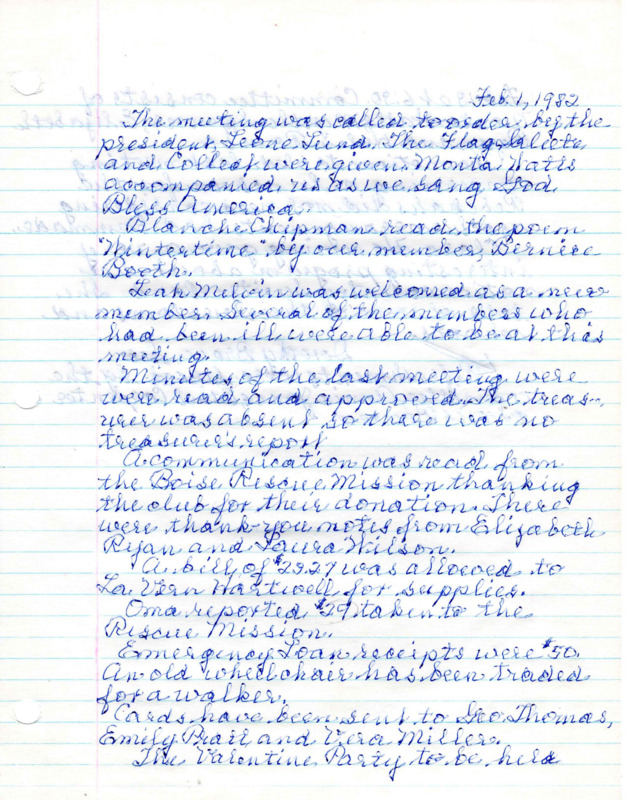 Feb. 1, 1982
The meeting was called to order by the
president, Leone Lund. The Flag Salute
and Collect were given. Monta Watts
accompanied us as we sang God
Bless America.
Blanche Chipman read the poem
"Wintertime" by our member, Bernice
Booth.
Leah Melvin was welcomed as a new
member. Several of the members who
had been ill were able to be at this
meeting.
Minutes of the last meeting were
were read and approved. The treas-
urer was absent so there was no
treasurer's report
A communication was read from
the Boise Rescue Mission thanking
the club for their donation. There
were thank-you notes from Elizabeth
Ryan and Laura Wilson.
A bill of $22.27 was allowed to
La Vern Hartwell for supplies.
Oma reported $29 taken to the
Rescue Mission.
Emergency Loan receipts were $50.
An old wheelchair has been traded
for a walker.
Cards have been sent to Geo Thomas,
Emily and Vera Miller.
The Valentine Party to be held